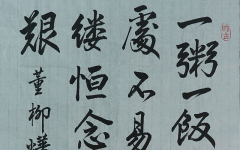 一粥一飯
處不易
缕恒念
艱
董柳